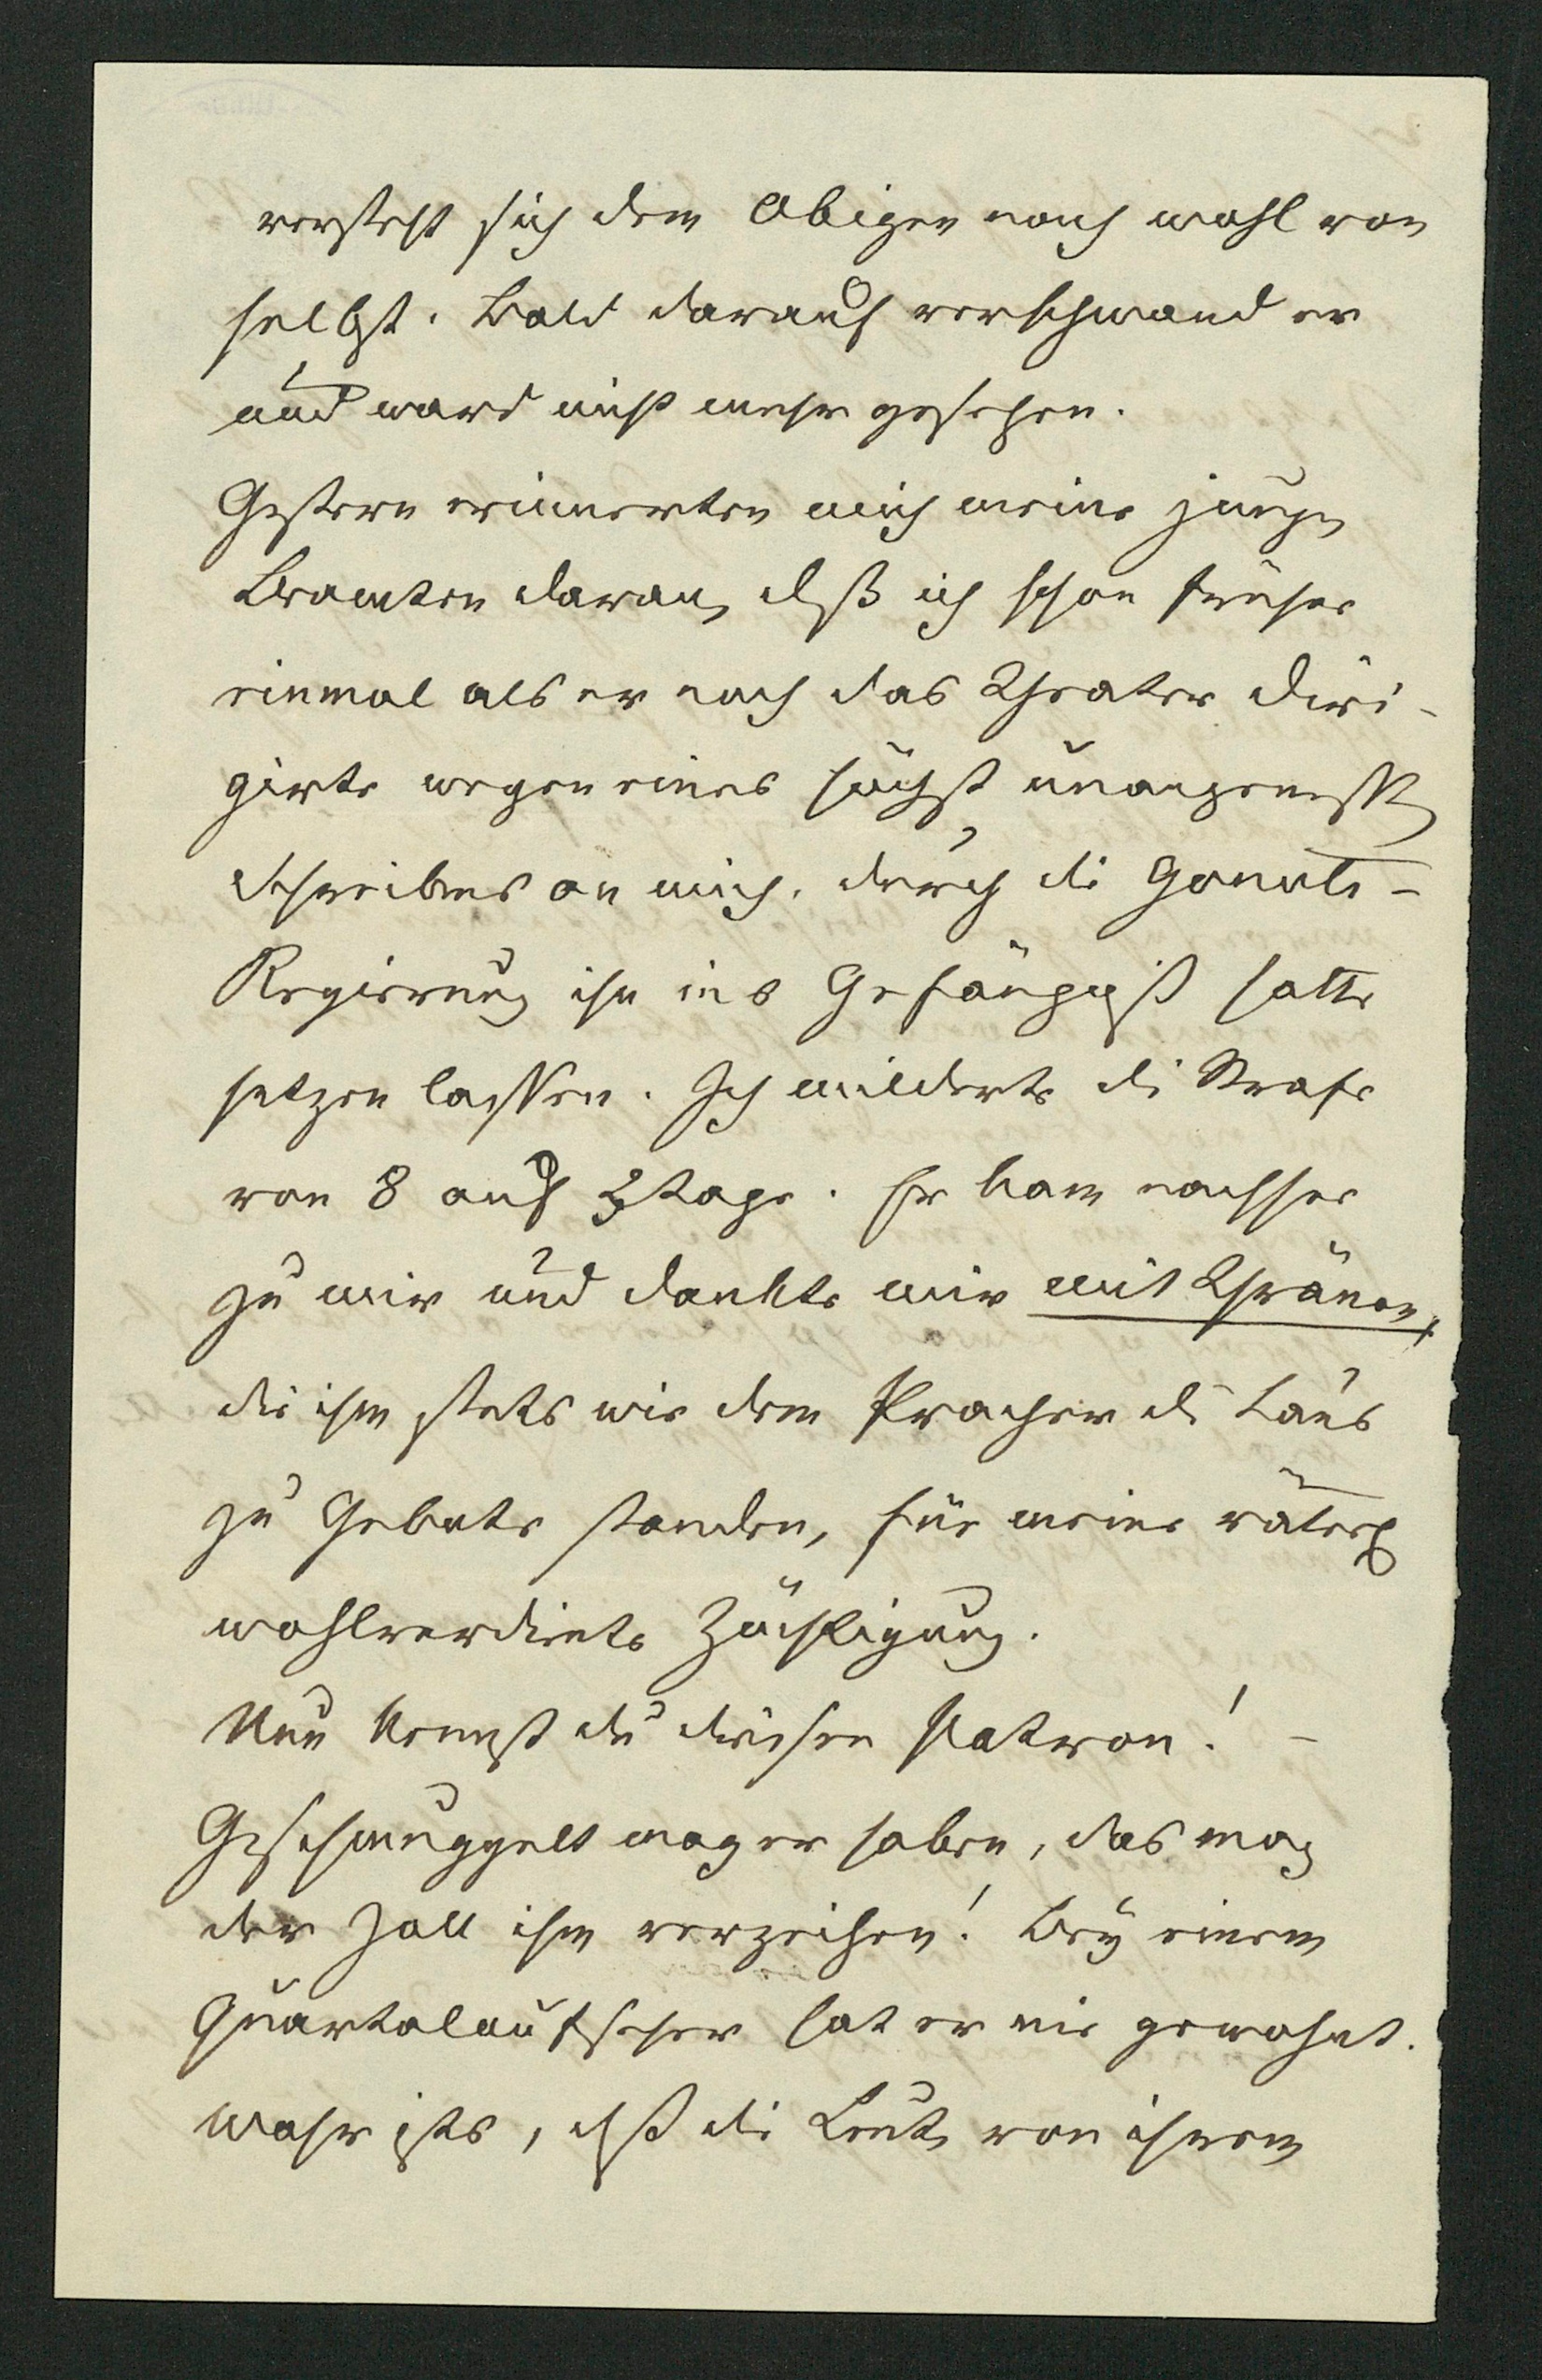 versteht sich dem Obigen nach wohl von
selbst. Bald darauf verschwand er
und ward nicht mehr gesehen.
Gestern erinnerten mich meine jungen
Beamten daran, daß ich schon früher
einmal als er noch das Theater diri-
girte wegen eines höchst unangenehmen
Schreibens an mich, durch die Gouvts-
Regierung ihn ins Gefängniß hatte
setzen lassen. Ich milderte die Strafe
von 8 auf 3 tage. Er kam nachher
zu mir und dankte mir mit Thränen,
die ihm stets wie dem Pracher die Läus
zu Gebote standen, für meine väterl
wohlverdiente Züchtigung.
Nun kennst du diesen Patron! –
Geschmuggelt mag er haben, das mag
der Zoll ihm verzeihen! Bey einem
Quartalaufseher hat er nie gewohnt.
Wahr ists, daß die Leute von ihrem